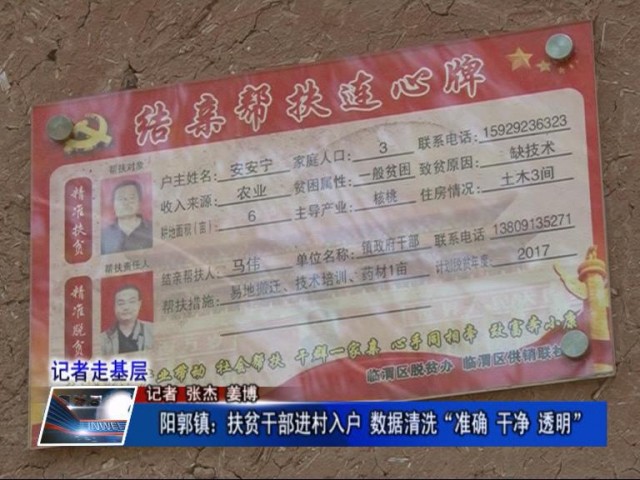 结亲帮扶连心牌
帮扶对象
户主姓名: 安安宁 家庭人口: 3 联系电话: 15929236323
收入来源: 农业 贫困属性: 一般贫困 致贫原因: 缺技术
耕地面积(亩) 6 主导产业: 核桃 住房情况: 土木3间
精准扶贫
帮扶责任人
结亲帮扶人: 马伟 单位名称: 镇政府干部 联系电话 13809135271
帮扶措施: 易地搬迁、技术培训、药材1亩 计划脱贫年度: 2017
精准脱贫
业带动 社会帮扶 干群一家亲 心手同相牵 致富奔小康
临渭区脱贫办 临渭区供销联
记者走基层
记者 张杰 姜博
阳郭镇: 扶贫干部进村入户 数据清洗“准确 干净 透明”